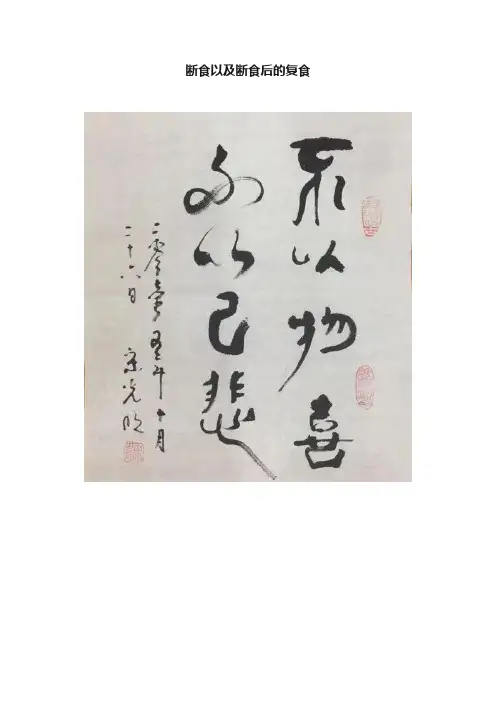 断食以及断食后的复食
不以物喜
不以己悲
二零壹年十月
二十六日 宋光明